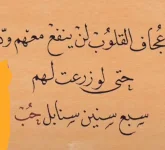 عجاف القلوب لن ينفع معهم
حتى لو زرعت لهم
سبع سنين سنابل حب